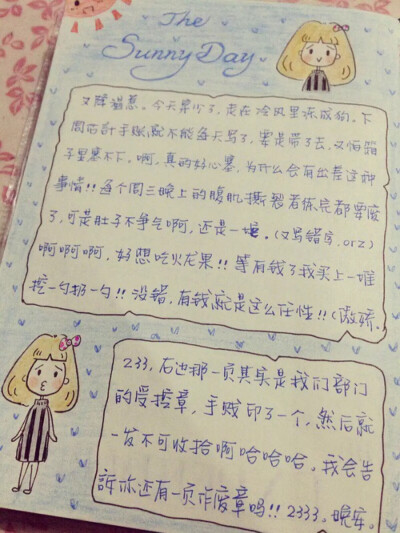 The
Sunny Day
又降温惹。今天第少了,走在冷风里冻成狗。下
周估计手账就不能每天写了,要是带了去,又怕箱
子里塞不下。啊,真的好心塞,为什么会有出差这种
事情!!每个周三晚上的腹肌撕裂者练完都要废
了,可是肚子不争气啊,还是一堆。(又写错字,orz)
啊啊啊啊,好想吃火龙果!!等有钱了我买上一堆
挖一勺扔一勺!!没错,有钱就是这么任性!!(傲娇.
233,右边那一页其实是我们部门
的受控章,手贱印了一个,然后就
一发不可收拾啊哈哈哈。我会告
訴你还有一页作废章吗!!2333。晚安。